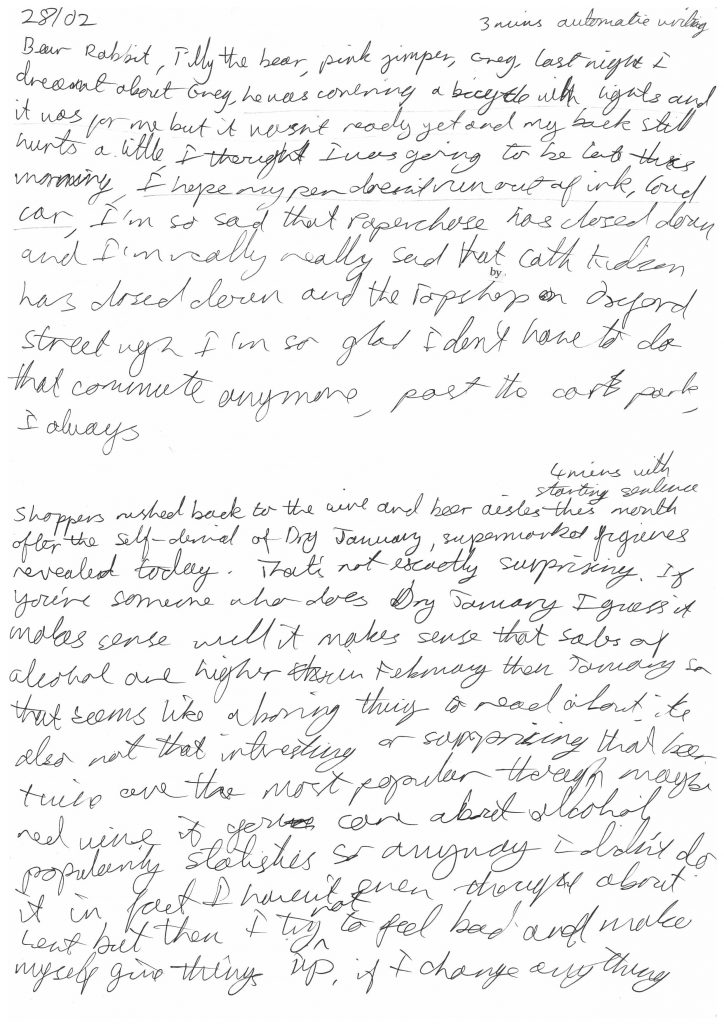 28/02
3 mins automatic writing
Bear Rabbit, Tilly the bear, pink jimper, Greg, last night I
dreamt about Greg, he was covering a bicycle with lights and
it was for me but it wasn't ready yet and my back still
hurts a little I thought I was going to be late this
morning, I hope my pen doesn't run out of ink, loud
car, I'm so sad that Paperchase has closed down
and I'm really really sad that Cath Kidson
has closed down and the Topshop on Oxford
by
street ugh I'm so glad I don't have to do
that commute anymore, past the car park,
I always
4 mins with
starting sentence
Shoppers rushed back to the wine and beer aisles this month
after the self-denial of Dry January, supermarket figures
revealed today. That's not exactly surprising. If
you're someone who does Dry January I guess it
makes sense well it makes sense that sales of
alcohol are higher in February than January so
that seems like a boring thing to read about, it's
also not that interesting or surprising that beer
are the most popular though maybe
red wine if you care about alcohol
popularity statistics so anyway I didn't do
it in fact I haven't even thought about
Lent but then I try not to feel bad and make
myself give things up, if I change anything